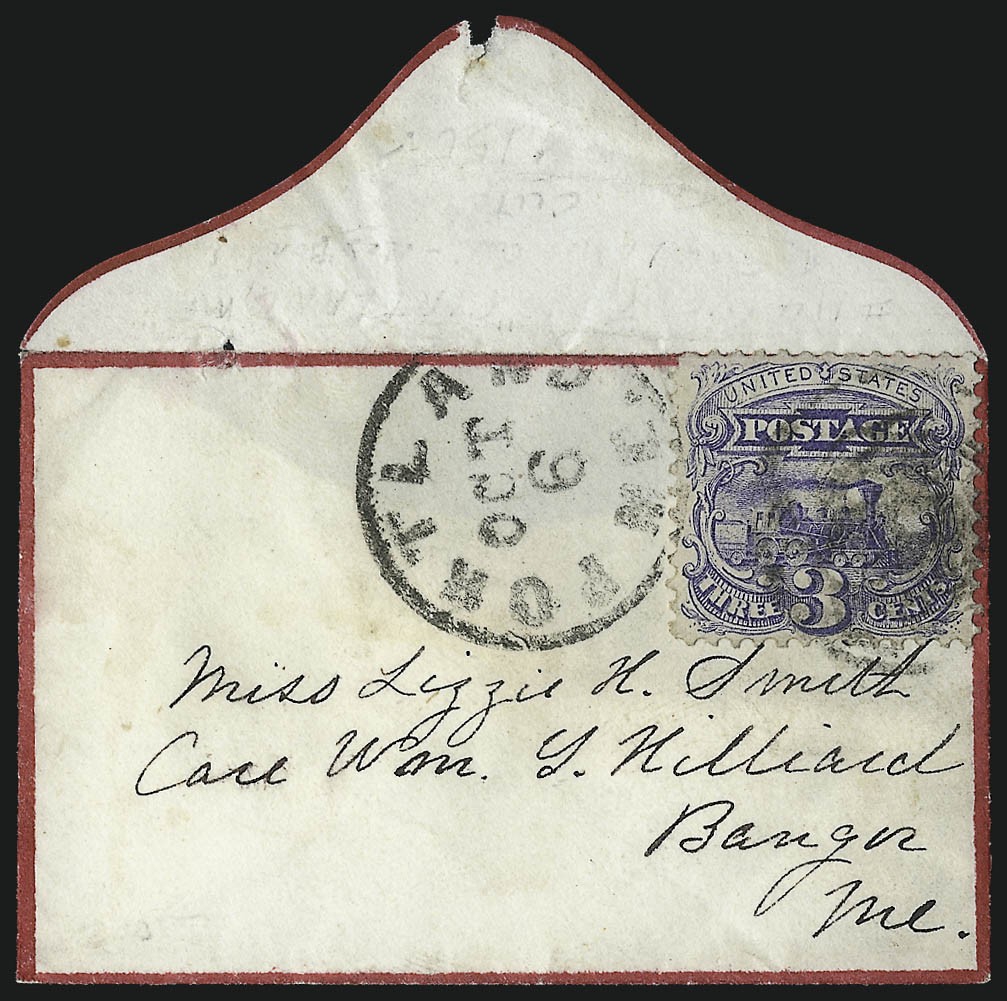 CUT
PORTLAND ME.
OCT
9
UNITED STATES
POSTAGE
THREE 3 CENTS
Miss Lizzie H. Smith
Care Wm. S. Hilliard
Bangor
Me.